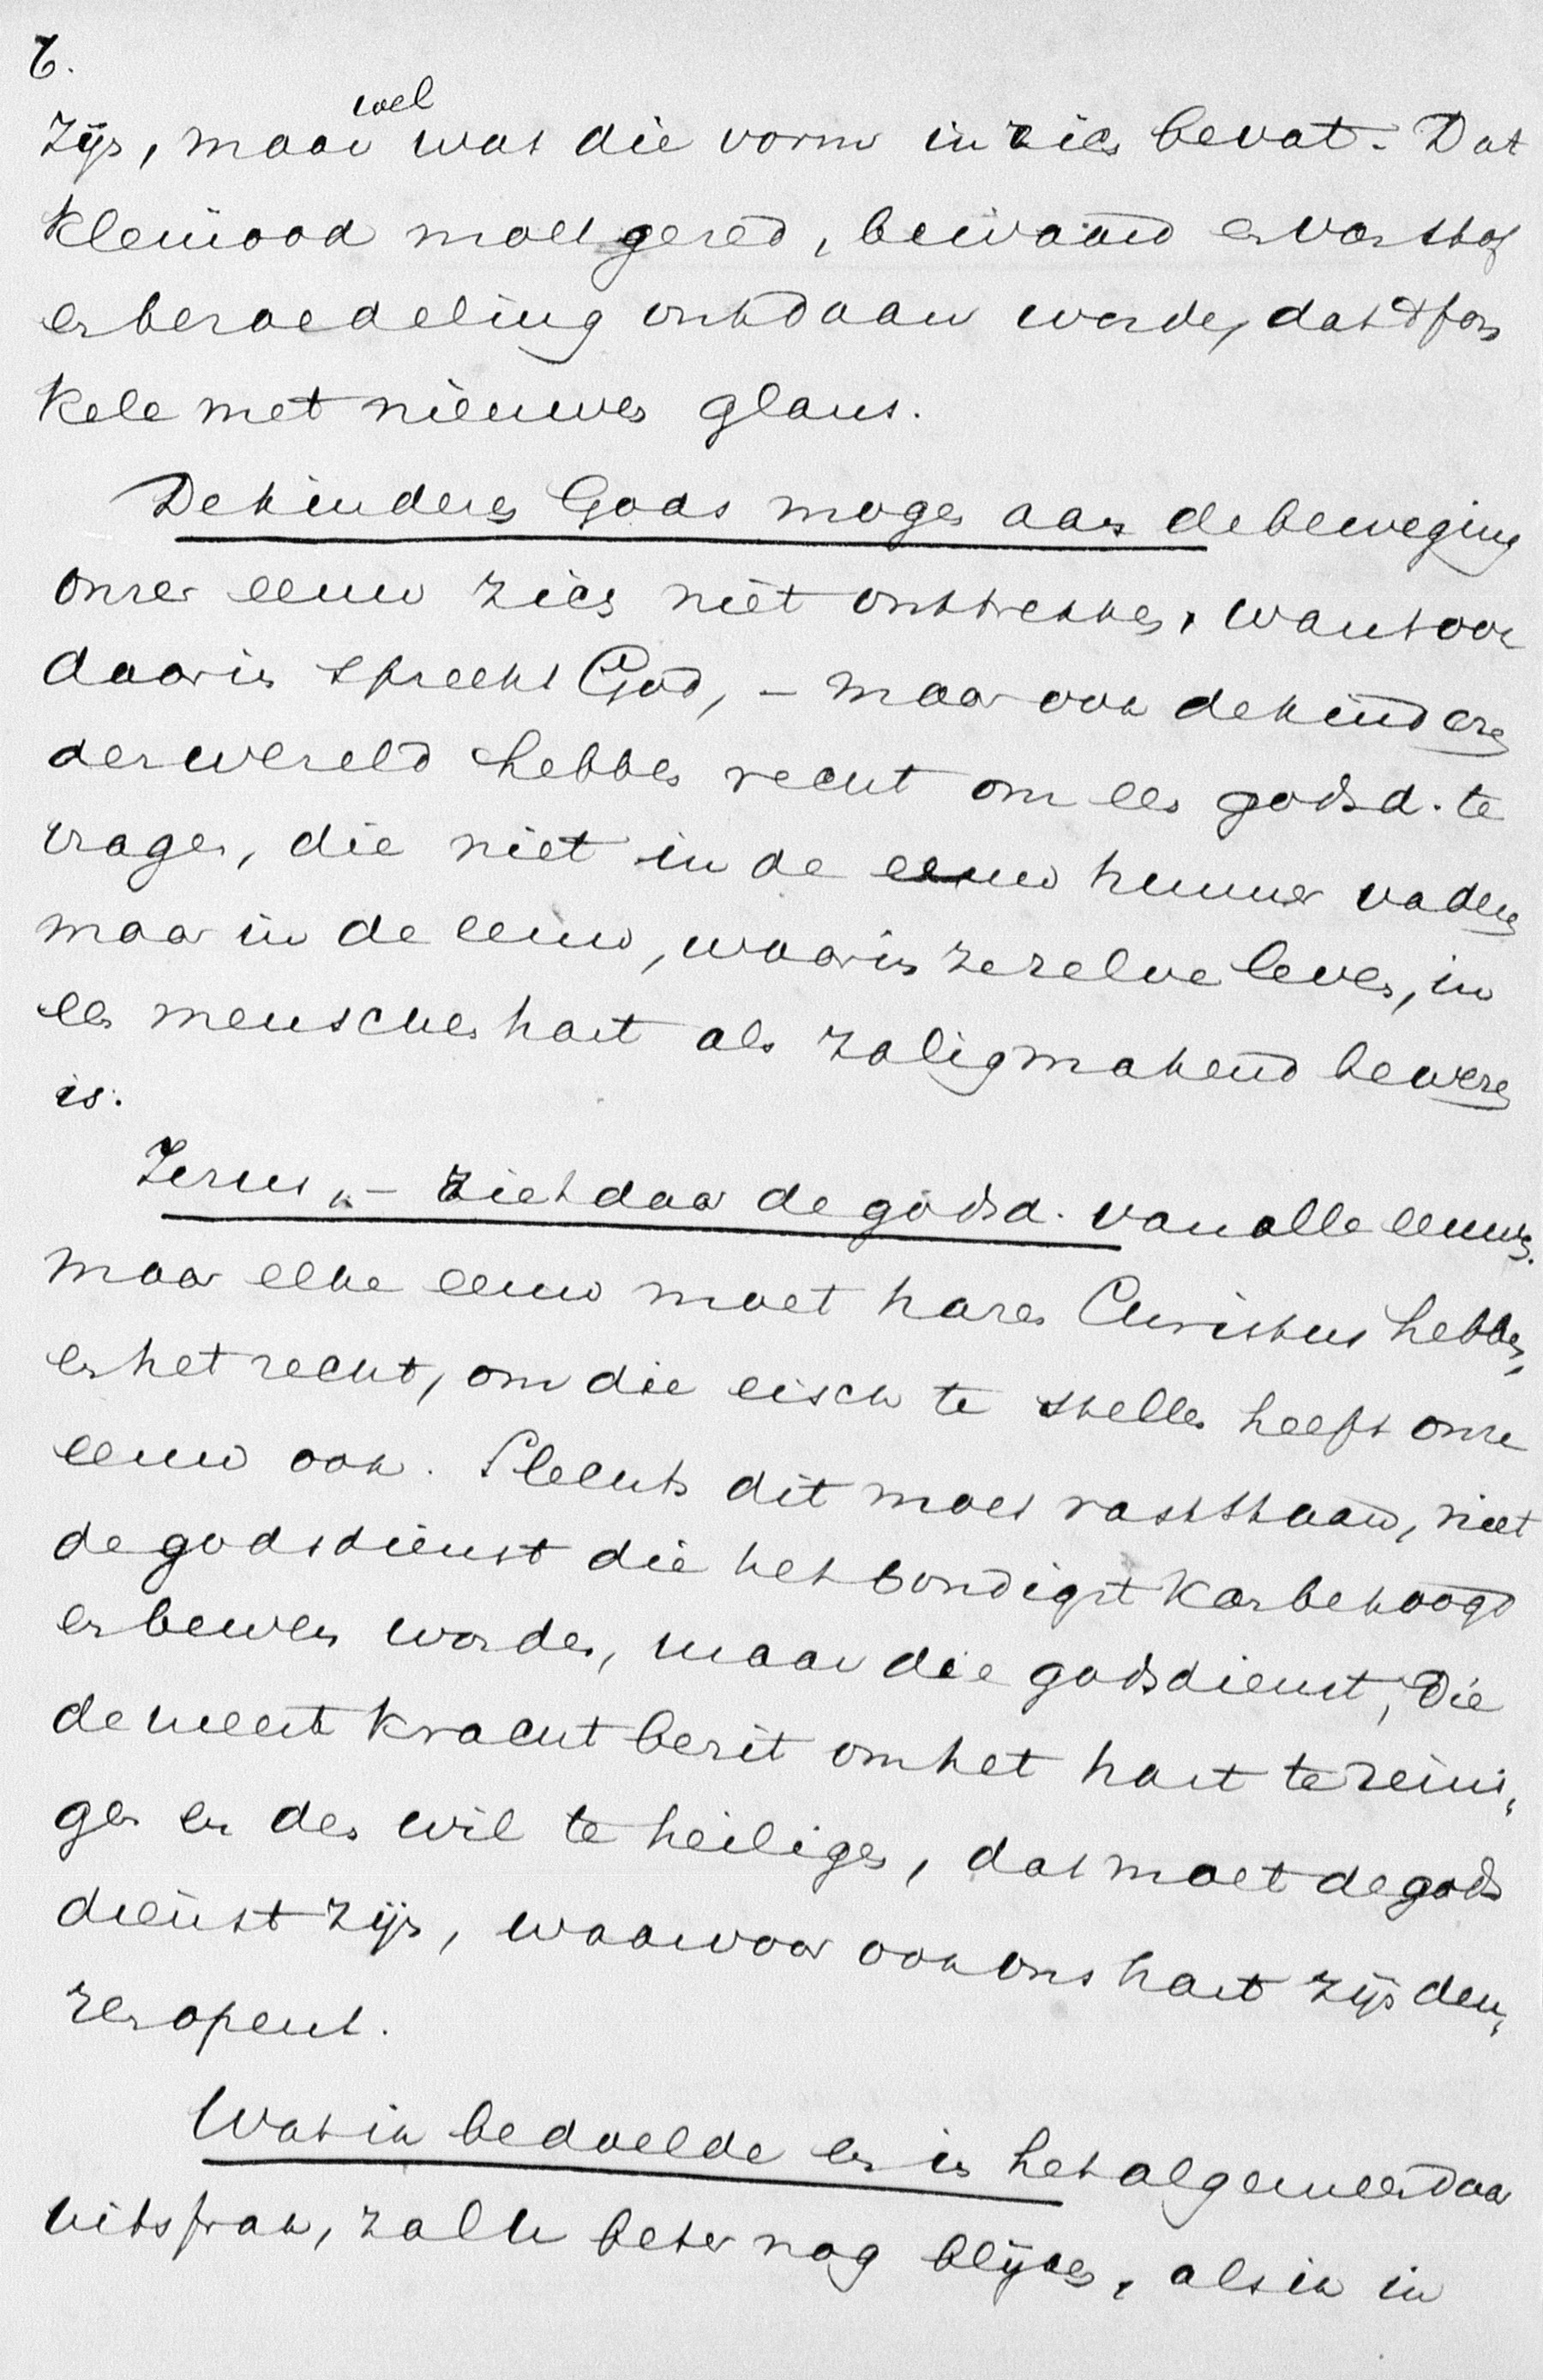 6.
zijn, maar wel wat die vorm in zich bevat. Dat
kleinood moet gered, bewaard en van stof
en beroedeling ontdaan worde, dat 't fon
kele met nieuwen glans.
De kinderen Gods mogen aan de beweging
onzer eeuw zich niet onttrekken, want ook
daarin spreekt God, – maar ook de kinderen
der wereld hebben recht om een godsd. te
vragen, die niet in de eeuw hunner vaderen
maar in de eeuw, waarin ze zelve leven, in
een menschenhart als zaligmakend bewezen
is.
Jezus, – ziet daar de godsd. van alle eeuwen.
maar elke eeuw moet haren Christus hebben,
en het recht, om die eisch te stellen heeft onze
eeuw ook. Slechts dit moet vaststaan, niet
de godsdienst die het bondigst kan betoogd
en bewezen worden, maar die godsdienst, die
de meeste kracht bezit om het hart te reini,
gen en den wil te heiligen, dat moet de gods
dienst zijn, waarvoor ook ons hart zijn deu,
ren opent.
Wat ik bedoelde en in het algemeen daar
uitsprak, zal U beter nog blijken, als ik in